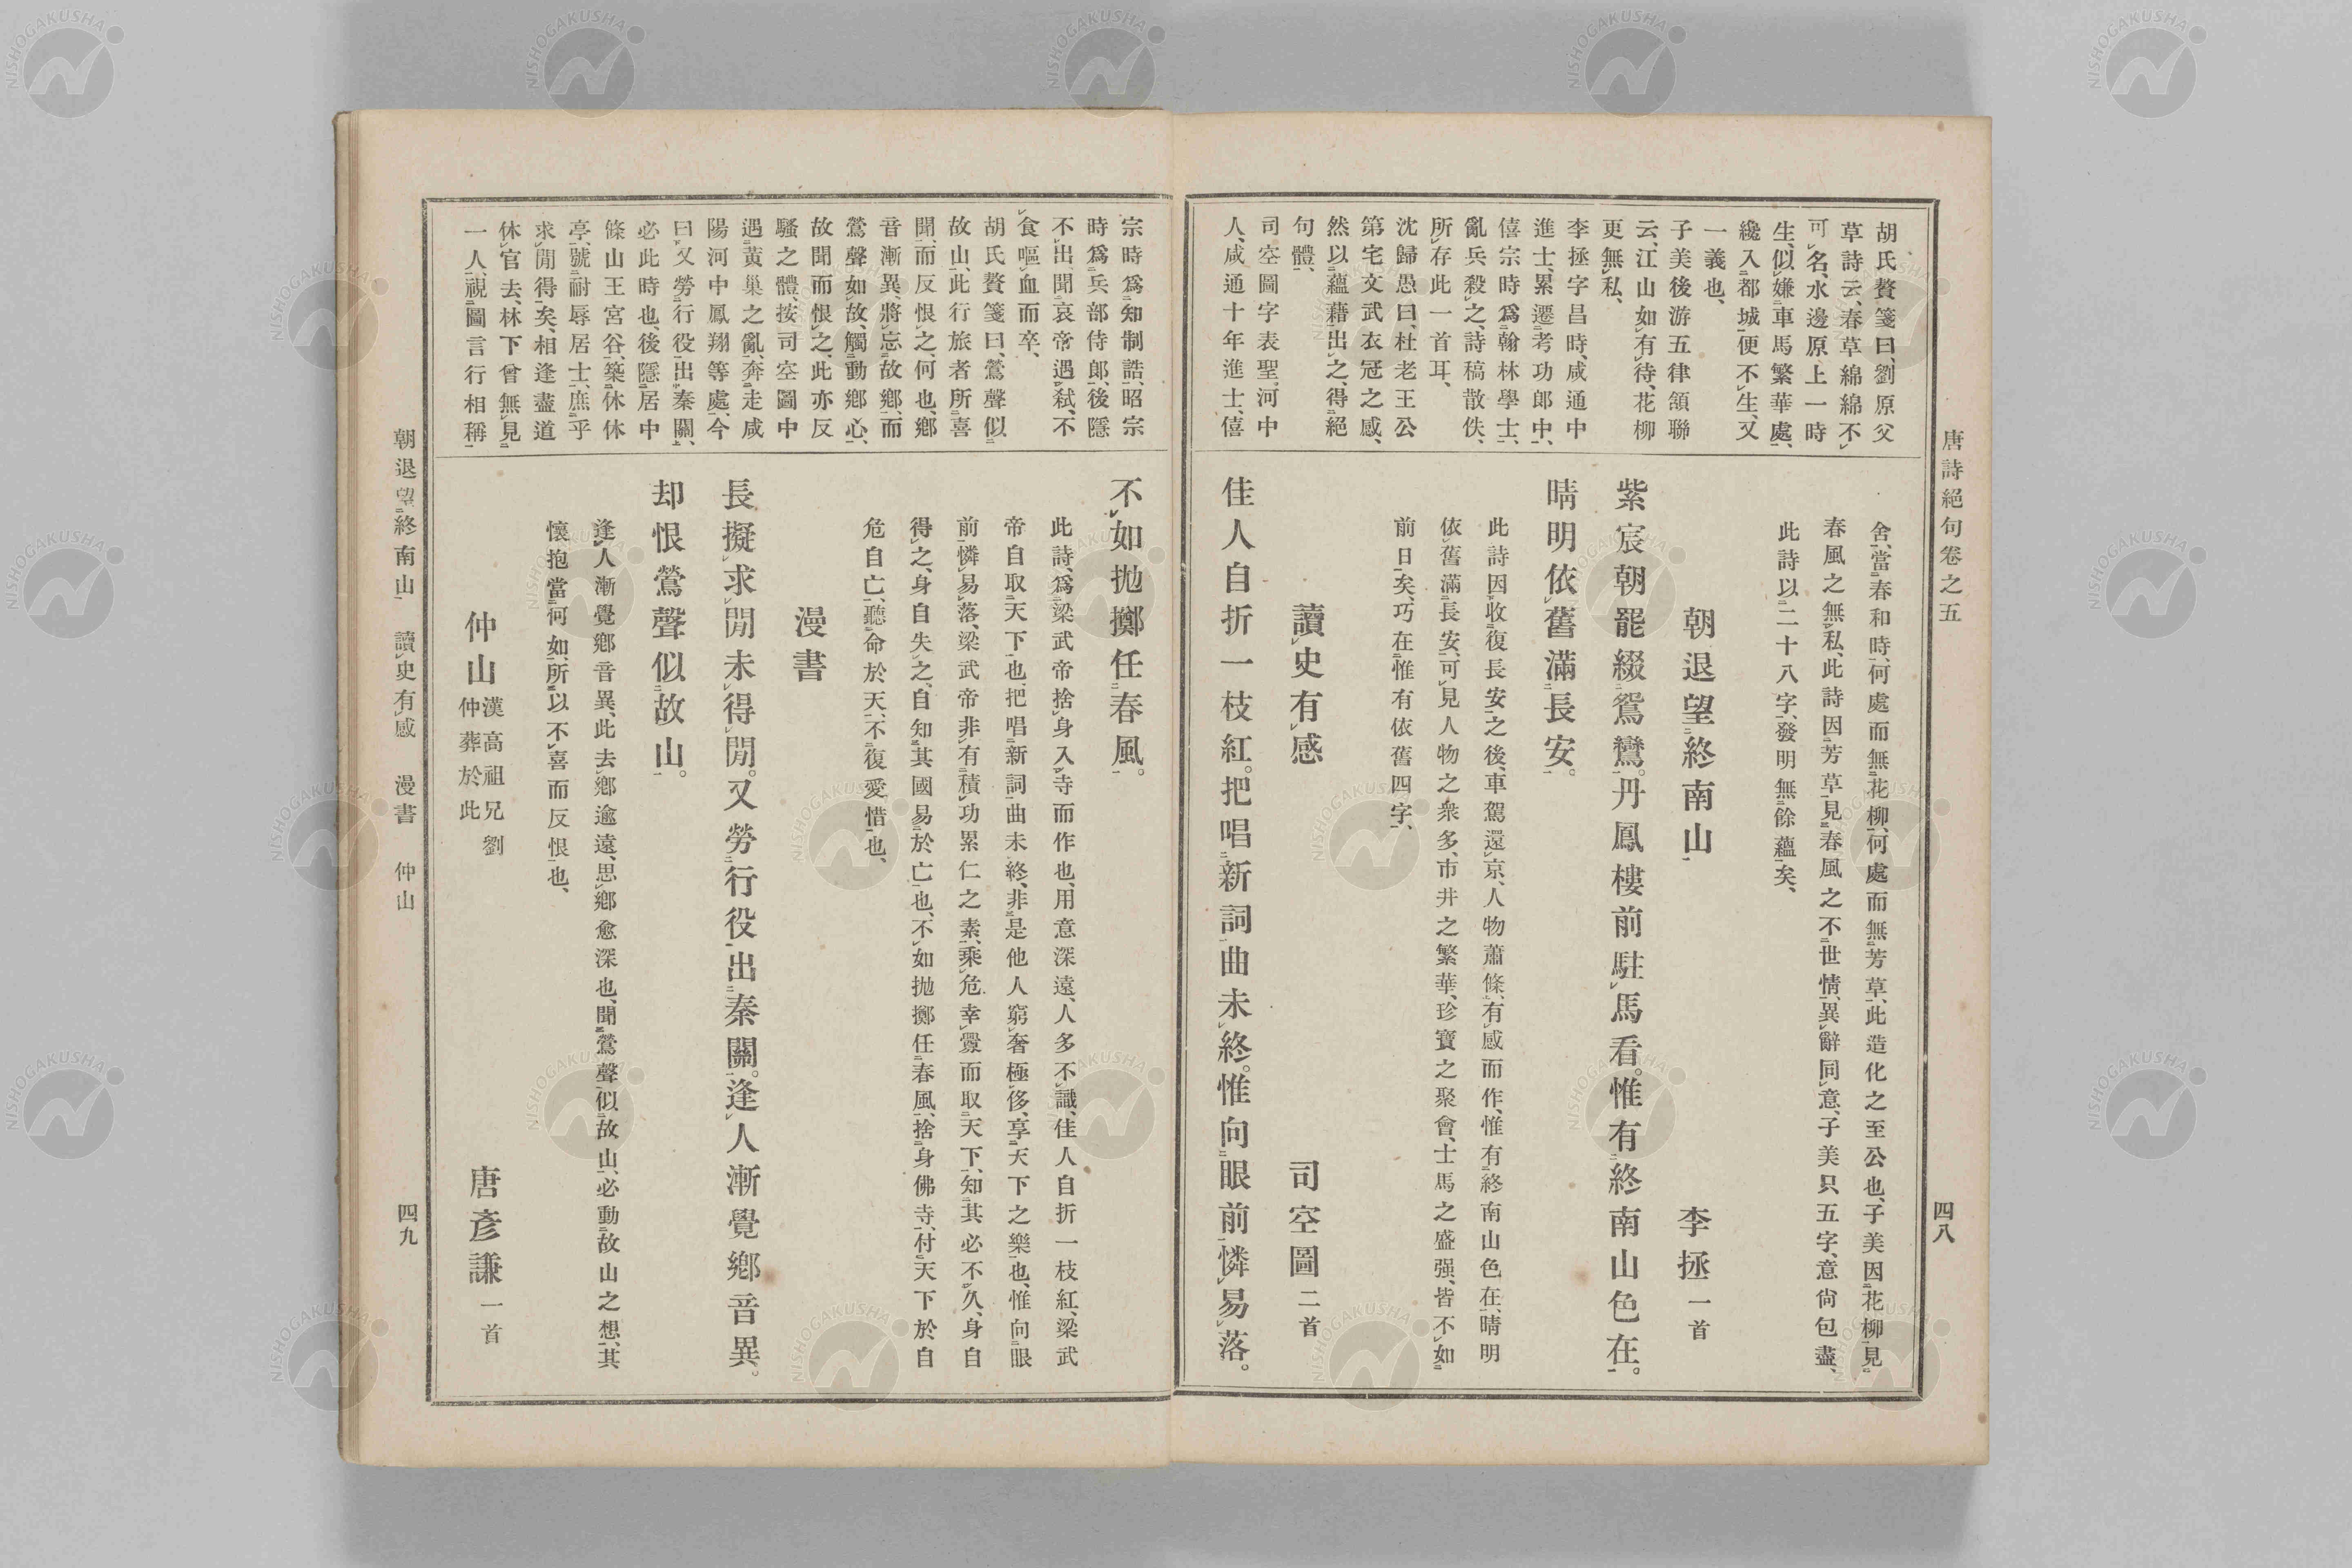 唐詩絕句卷之五
四八
胡氏贅箋曰、劉原父
草詩云、春草綿綿不
可名、水邊原上一時
生、似嫌車馬繁華處、
纔入都城便不生、又
一義也、
子美後游五律頷聯
云、江山如有待、花柳
更無私、
李拯字昌時、咸通中
進士、累遷考功郎中、
僖宗時爲翰林學士、
亂兵殺之、詩稿散佚、
所存此一首耳、
沈歸愚曰、杜老王公
第宅文武衣冠之感、
然以蘊藉出之、得絕
句體、
司空圖字表聖、河中
人、咸通十年進士、僖
舍、當春和時、何處而無花柳、何處而無芳草、此造化之至公也、子美因花柳見
春風之無私、此詩因芳草見春風之不世情、異辭同意、子美只五字、意尙包盡、
此詩以二十八字、發明無餘蘊矣、
朝退望終南山 李拯 一首
紫宸朝罷綴鴛鸞。丹鳳樓前駐馬看。惟有終南山色在。
晴明依舊滿長安。
此詩因收復長安之後、車駕還京、人物蕭條、有感而作、惟有終南山色在、晴明
依舊滿長安、可見人物之衆多、市井之繁華、珍寶之聚會、士馬之盛强、皆不如
前日矣、巧在惟有依舊四字、
讀史有感 司空圖 二首
佳人自折一枝紅。把唱新詞曲未終。惟向眼前憐易落。
宗時爲知制誥、昭宗
時爲兵部侍郎、後隱
不出、聞哀帝遇弒、不
食嘔血而卒、
胡氏贅箋曰、鶯聲似
故山、此行旅者所喜
聞、而反恨之、何也、鄉
音漸異、將忘故鄉、而
鶯聲如故、觸動鄉心、
故聞而恨之、此亦反
騷之體、按司空圖中
遇黃巢之亂、奔走咸
陽河中鳳翔等處、今
曰又勞行役出秦關、
必此時也、後隱居中
條山王宮谷、築休休
亭、號耐辱居士、庶乎
求閒得矣、相逢盡道
休官去、林下曾無見
一人、視圖言行相稱
不如抛擲任春風。
此詩、爲梁武帝捨身入寺而作也、用意深遠、人多不識、佳人自折一枝紅、梁武
帝自取天下也、把唱新詞曲未終、非是他人窮奢極侈、享天下之樂也、惟向眼
前憐易落、梁武帝非有積功累仁之素、乘危幸釁而取天下、知其必不久、身自
得之、身自失之、自知其國易於亡也、不如抛擲任春風、捨身佛寺、付天下於自
危自亡、聽命於天、不復愛惜也、
漫書
長擬求閒未得閒。又勞行役出秦關。逢人漸覺鄉音異。
却恨鶯聲似故山。
逢人漸覺鄉音異、此去鄉逾遠、思鄉愈深也、聞鶯聲似故山、必動故山之想、其
懷抱當何如、所以不喜而反恨也、
仲山 漢高祖兄劉仲葬於此 唐彥謙 一首
朝退望終南山 讀史有感 漫書 仲山
四九
NISHOGAKUSHA